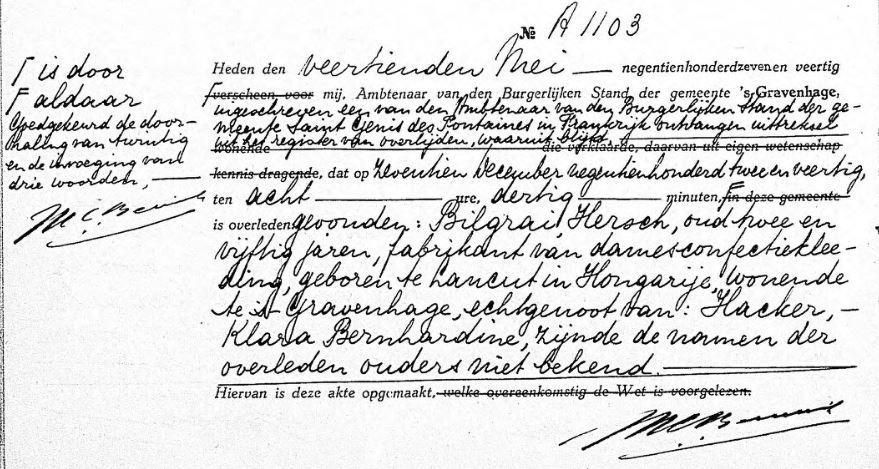 № A 1103
Γ is door
Γ aldaar
Goedgekeurd de door-
haling van twintig
en de invoeging van
drie woorden, —
Heden den veertienden Mei — negentienhonderdzevenen veertig
Γverscheen voor mij, Ambtenaar van den Burgerlijken Stand der gemeente 's-Gravenhage,
ingeschreven een van den Ambtenaar van den Burgerlijken Stand der ge-
meente Saint Génis des Fontaines in Frankrijk ontvangen uittreksel
uit het register van overlijden, waaruit blijkt
wonende die verklaarde, daarvan uit eigen wetenschap
kennis dragende, dat op zeventien December negentienhonderd twee en veertig,
ten acht — ure, dertig — minuten, Γin deze gemeente
is overleden gevonden: Bilgrai, Hersch, oud twee en
vijftig jaren, fabrikant van damesconfectieklee-
ding, geboren te Lancut in Hongarije, wonende
te 's Gravenhage, echtgenoot van: Hacker, —
Klara Bernhardine, zijnde de namen der
overleden ouders niet bekend. —
Hiervan is deze akte opgemaakt, welke overeenkomstig de Wet is voorgelezen.